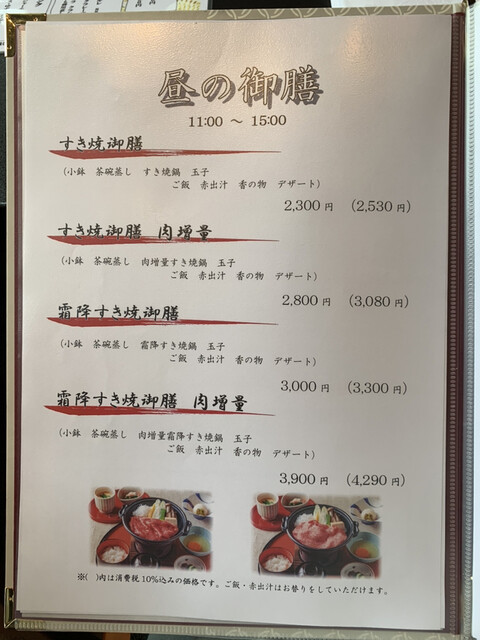 昼の御膳
11:00 ～ 15:00
すき焼御膳
(小鉢 茶碗蒸し すき焼鍋 玉子
ご飯 赤出汁 香の物 デザート)
2,300 円 (2,530 円)
すき焼御膳 肉増量
(小鉢 茶碗蒸し 肉増量すき焼鍋 玉子
ご飯 赤出汁 香の物 デザート)
2,800 円 (3,080 円)
霜降すき焼御膳
(小鉢 茶碗蒸し 霜降すき焼鍋 玉子
ご飯 赤出汁 香の物 デザート)
3,000 円 (3,300 円)
霜降すき焼御膳 肉増量
(小鉢 茶碗蒸し 肉増量霜降すき焼鍋 玉子
ご飯 赤出汁 香の物 デザート)
3,900 円 (4,290 円)
※( )内は消費税10%込みの価格です。ご飯・赤出汁はお替りをしていただけます。